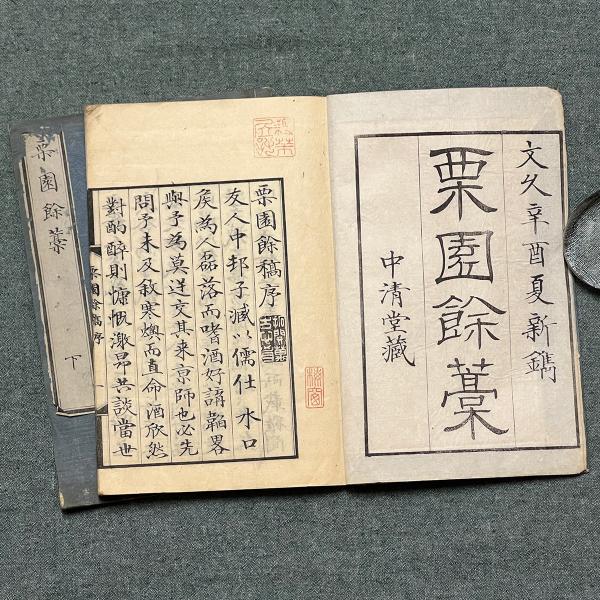 文久辛酉夏新鐫
栗園餘藁
中清堂藏
栗園餘稿序
友人中邨子臧以儒仕 水口
矦為人磊落而嗜酒好講韜畧
與予為莫逆交其来京師也必先
問予未及敘寒燠而直命酒欣然
對酌醉則慷慨激昂共談當世
栗園餘稿序 一
栗園餘藁 下